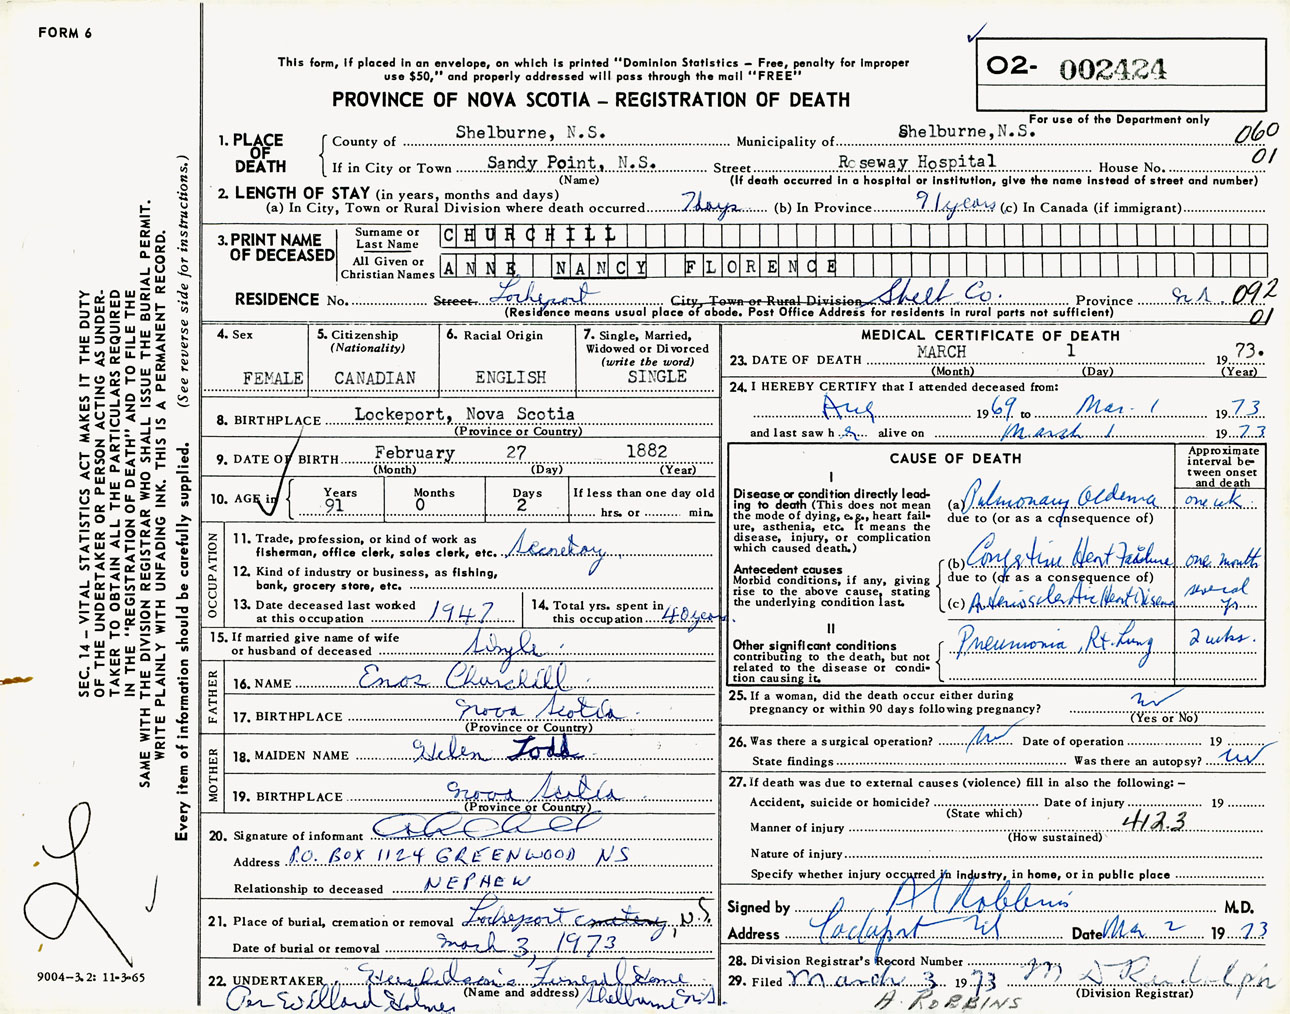 FORM 6
This form, if placed in an envelope, on which is printed "Dominion Statistics – Free, penalty for improper
use $50," and properly addressed will pass through the mail "FREE"
PROVINCE OF NOVA SCOTIA – REGISTRATION OF DEATH
02- 002424
For use of the Department only
060
01
1. PLACE OF DEATH
County of Shelburne, N.S. Municipality of Shelburne, N.S.
If in City or Town Sandy Point, N.S. Street Roseway Hospital House No.
(Name) (If death occurred in a hospital or institution, give the name instead of street and number)
2. LENGTH OF STAY (in years, months and days)
(a) In City, Town or Rural Division where death occurred 7 days (b) In Province 91 years (c) In Canada (if immigrant)
3. PRINT NAME OF DECEASED
Surname or Last Name CHURCHILL
All Given or Christian Names ANNE NANCY FLORENCE
RESIDENCE No. Street Lockeport City, Town or Rural Division Shelb Co. Province N.S. 092
(Residence means usual place of abode. Post Office Address for residents in rural parts not sufficient) 01
4. Sex
FEMALE
5. Citizenship
(Nationality)
CANADIAN
6. Racial Origin
ENGLISH
7. Single, Married,
Widowed or Divorced
(write the word)
SINGLE
8. BIRTHPLACE Lockeport, Nova Scotia
(Province or Country)
9. DATE OF BIRTH February 27 1882
(Month) (Day) (Year)
10. AGE in
Years 91
Months 0
Days 2
If less than one day old
hrs. or min.
OCCUPATION
11. Trade, profession, or kind of work as
fisherman, office clerk, sales clerk, etc. Secretary
12. Kind of industry or business, as fishing,
bank, grocery store, etc.
13. Date deceased last worked
at this occupation 1947
14. Total yrs. spent in
this occupation 40 years.
15. If married give name of wife
or husband of deceased Single
FATHER
16. NAME Enos Churchill
17. BIRTHPLACE Nova Scotia
(Province or Country)
MOTHER
18. MAIDEN NAME Helen Todd
19. BIRTHPLACE Nova Scotia
(Province or Country)
20. Signature of informant
Address P.O. BOX 1124 GREENWOOD NS
Relationship to deceased NEPHEW
21. Place of burial, cremation or removal Lockeport cemetery, N.S.
Date of burial or removal March 3, 1973
22. UNDERTAKER Funeral Home
(Name and address) Shelburne N.S.
Per Willard Holmes
MEDICAL CERTIFICATE OF DEATH
23. DATE OF DEATH MARCH 1 1973.
(Month) (Day) (Year)
24. I HEREBY CERTIFY that I attended deceased from:
Aug 1969 to Mar. 1 1973
and last saw her alive on March 1 1973
CAUSE OF DEATH
Approximate
interval be-
tween onset
and death
I
Disease or condition directly lead-
ing to death (This does not mean
the mode of dying, e.g., heart fail-
ure, asthenia, etc. It means the
disease, injury, or complication
which caused death.)
(a) Pulmonary Oedema one wk
due to (or as a consequence of)
Antecedent causes
Morbid conditions, if any, giving
rise to the above cause, stating
the underlying condition last.
(b) Congestive Heart Failure one month
due to (or as a consequence of)
(c) Arteriosclerotic Heart Disease several yrs
II
Other significant conditions
contributing to the death, but not
related to the disease or condi-
tion causing it.
Pneumonia, Rt. Lung 2 wks.
25. If a woman, did the death occur either during
pregnancy or within 90 days following pregnancy? no
(Yes or No)
26. Was there a surgical operation? no Date of operation 19
State findings Was there an autopsy? no
27. If death was due to external causes (violence) fill in also the following: –
Accident, suicide or homicide? Date of injury 19
(State which)
Manner of injury 412.3
(How sustained)
Nature of injury
Specify whether injury occurred in industry, in home, or in public place
Signed by A Robbins M.D.
Address Lockeport NS Date Mar 2 1973
28. Division Registrar's Record Number
29. Filed March 3 1973
(Division Registrar)
A. ROBBINS
SEC. 14 – VITAL STATISTICS ACT MAKES IT THE DUTY
OF THE UNDERTAKER OR PERSON ACTING AS UNDER-
TAKER TO OBTAIN ALL THE PARTICULARS REQUIRED
IN THE "REGISTRATION OF DEATH" AND TO FILE THE
SAME WITH THE DIVISION REGISTRAR WHO SHALL ISSUE THE BURIAL PERMIT.
WRITE PLAINLY WITH UNFADING INK. THIS IS A PERMANENT RECORD.
Every item of information should be carefully supplied. (See reverse side for instructions.)
9004-3.2: 11-3-65